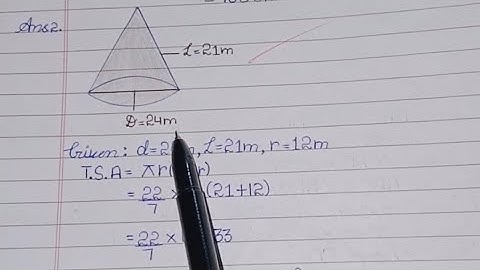 Ans2.
L=21m
D=24m
Given: d=2 m, L=21m, r=12m
T.S.A = πr( r)
= 22/7 × (21+12)
= 22/7 × 33